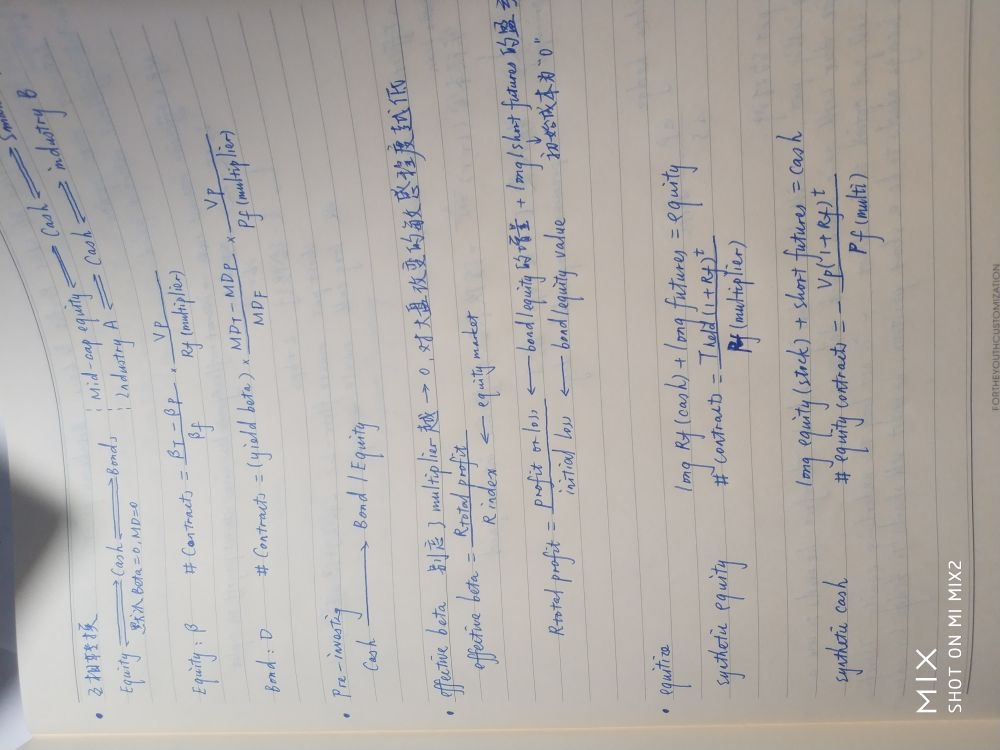 • 互相转换
Equity ⇌ Cash ⇌ Bonds ; Mid-cap equity ⇌ Cash ⇌
默认 Beta=0, MD=0 ; Industry A ⇌ Cash ⇌ industry B
Equity : β # Contracts = (βT − βP)/βf × VP/Pf(multiplier)
Bond : D # Contracts = (yield beta) × (MDT − MDP)/MDF × VP/Pf(multiplier)
• Pre-investing
Cash → Bond / Equity
• effective beta 别忘了 multiplier 越 → 0, 对大盘改变的敏感程度越低
effective beta = Rtotal profit / R index ← equity market
Rtotal profit = profit or loss / initial loss ← bond/equity 的增量 + long/short futures 的盈
← bond/equity value 初始成本为 "0"
• equitize
synthetic equity long Rf (cash) + long futures = equity
# contracts = (1+Rf)^t / Pf (multiplier)
synthetic cash long equity (stock) + short futures = cash
# equity contracts = − VP(1+Rf)^t / Pf (multi)
FORTHEYOUTHCUSTOMIZATION
MIX
SHOT ON MI MIX2